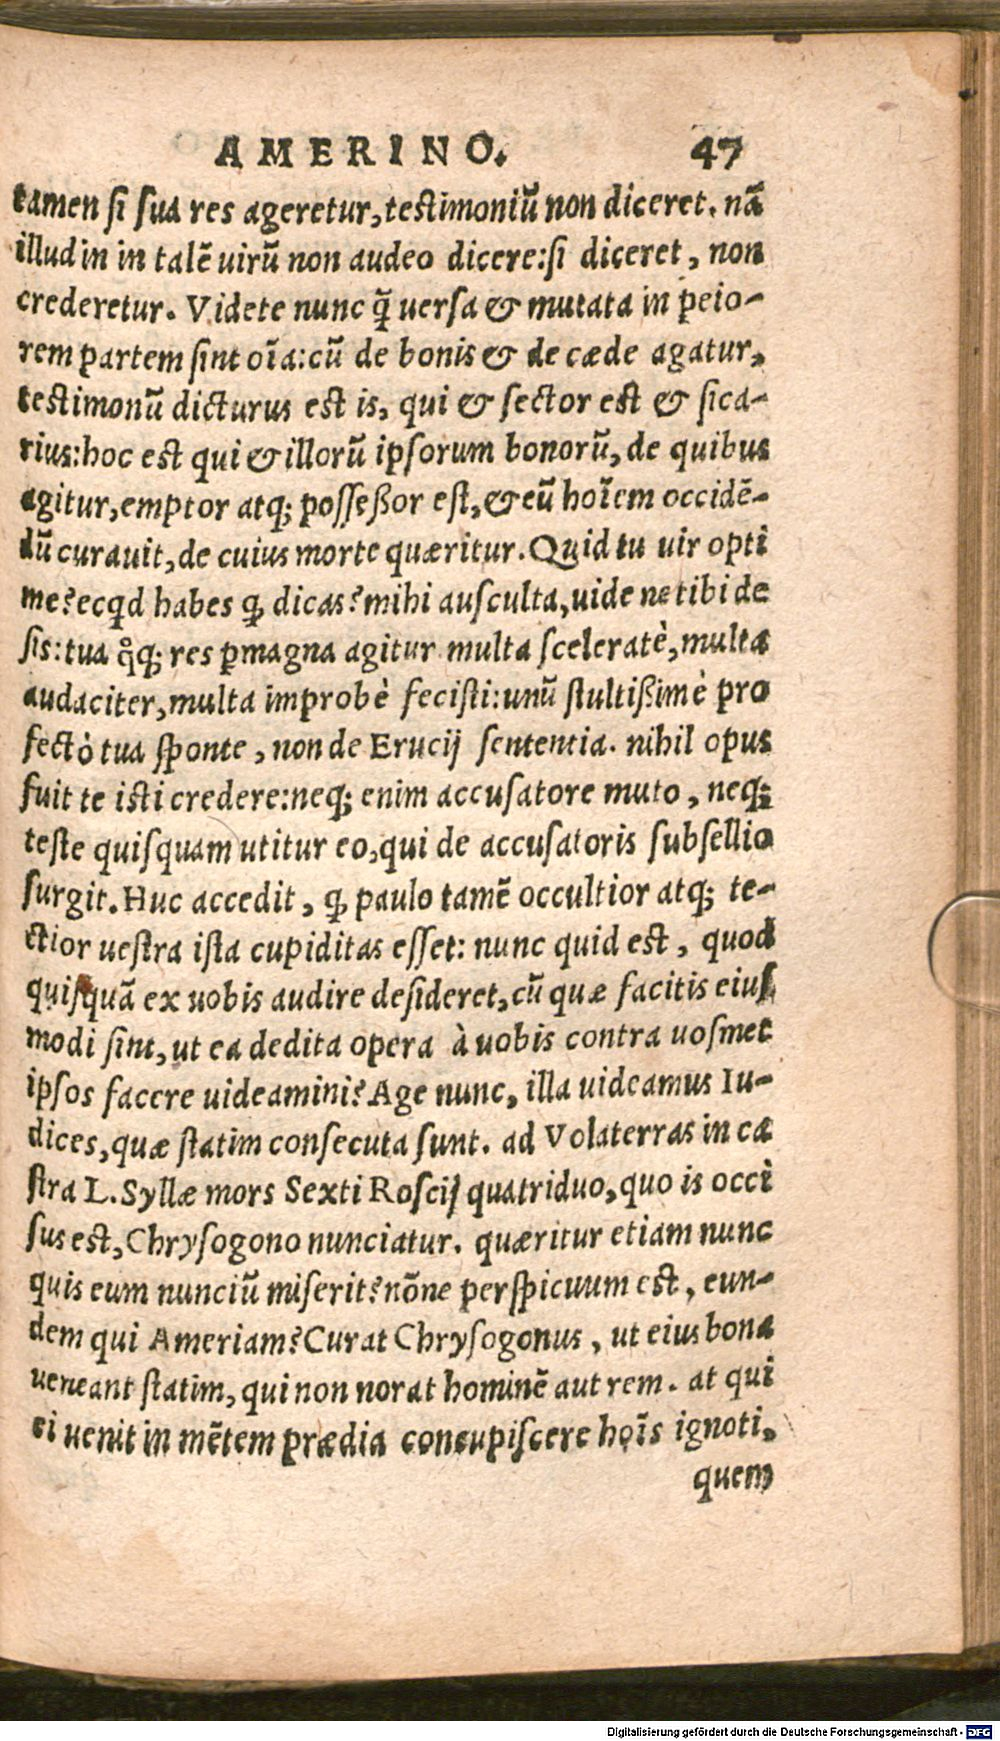 AMERINO. 47
tamen ſi ſua res ageretur, teſtimoniũ non diceret. nã
illud in in talẽ uirũ non audeo dicere: ſi diceret, non
crederetur. Videte nunc q̃ uerſa & mutata in peio-
rem partem ſint oĩa: cũ de bonis & de cæde agatur,
teſtimonũ dicturus eſt is, qui & ſector eſt & ſica-
rius: hoc eſt qui & illorũ ipſorum bonorũ, de quibus
agitur, emptor atq; poſſeßor eſt, & eũ hoĩem occidẽ-
dũ curauit, de cuius morte quæritur. Quid tu uir opti
me? ecqd habes ꝙ dicas? mihi auſculta, uide ne tibi de
ſis: tua q̊q; res ꝑmagna agitur multa ſceleratè, multa
audaciter, multa improbè feciſti: unũ ſtultißimè pro
fectò tua ſponte, non de Erucij ſententia. nihil opus
fuit te iſti credere: neq; enim accuſatore muto, neq;
teſte quiſquam utitur eo, qui de accuſatoris ſubſellio
ſurgit. Huc accedit, ꝙ paulo tamẽ occultior atq; te-
ctior ueſtra iſta cupiditas eſſet: nunc quid eſt, quod
quiſquã ex uobis audire deſideret, cũ quæ facitis eiuſ
modi ſint, ut ea dedita opera à uobis contra uoſmet
ipſos facere uideamini? Age nunc, illa uideamus Iu-
dices, quæ ſtatim conſecuta ſunt. ad Volaterras in ca
ſtra L. Syllæ mors Sexti Roſcij quatriduo, quo is occi
ſus eſt, Chryſogono nunciatur. quæritur etiam nunc
quis eum nunciũ miſerit? nõne perſpicuum eſt, eun-
dem qui Ameriam? Curat Chryſogonus, ut eius bona
ueneant ſtatim, qui non norat hominẽ aut rem. at qui
ei uenit in mẽtem prædia concupiſcere hoĩs ignoti,
quem
Digitalisierung gefördert durch die Deutsche Forschungsgemeinschaft - DFG